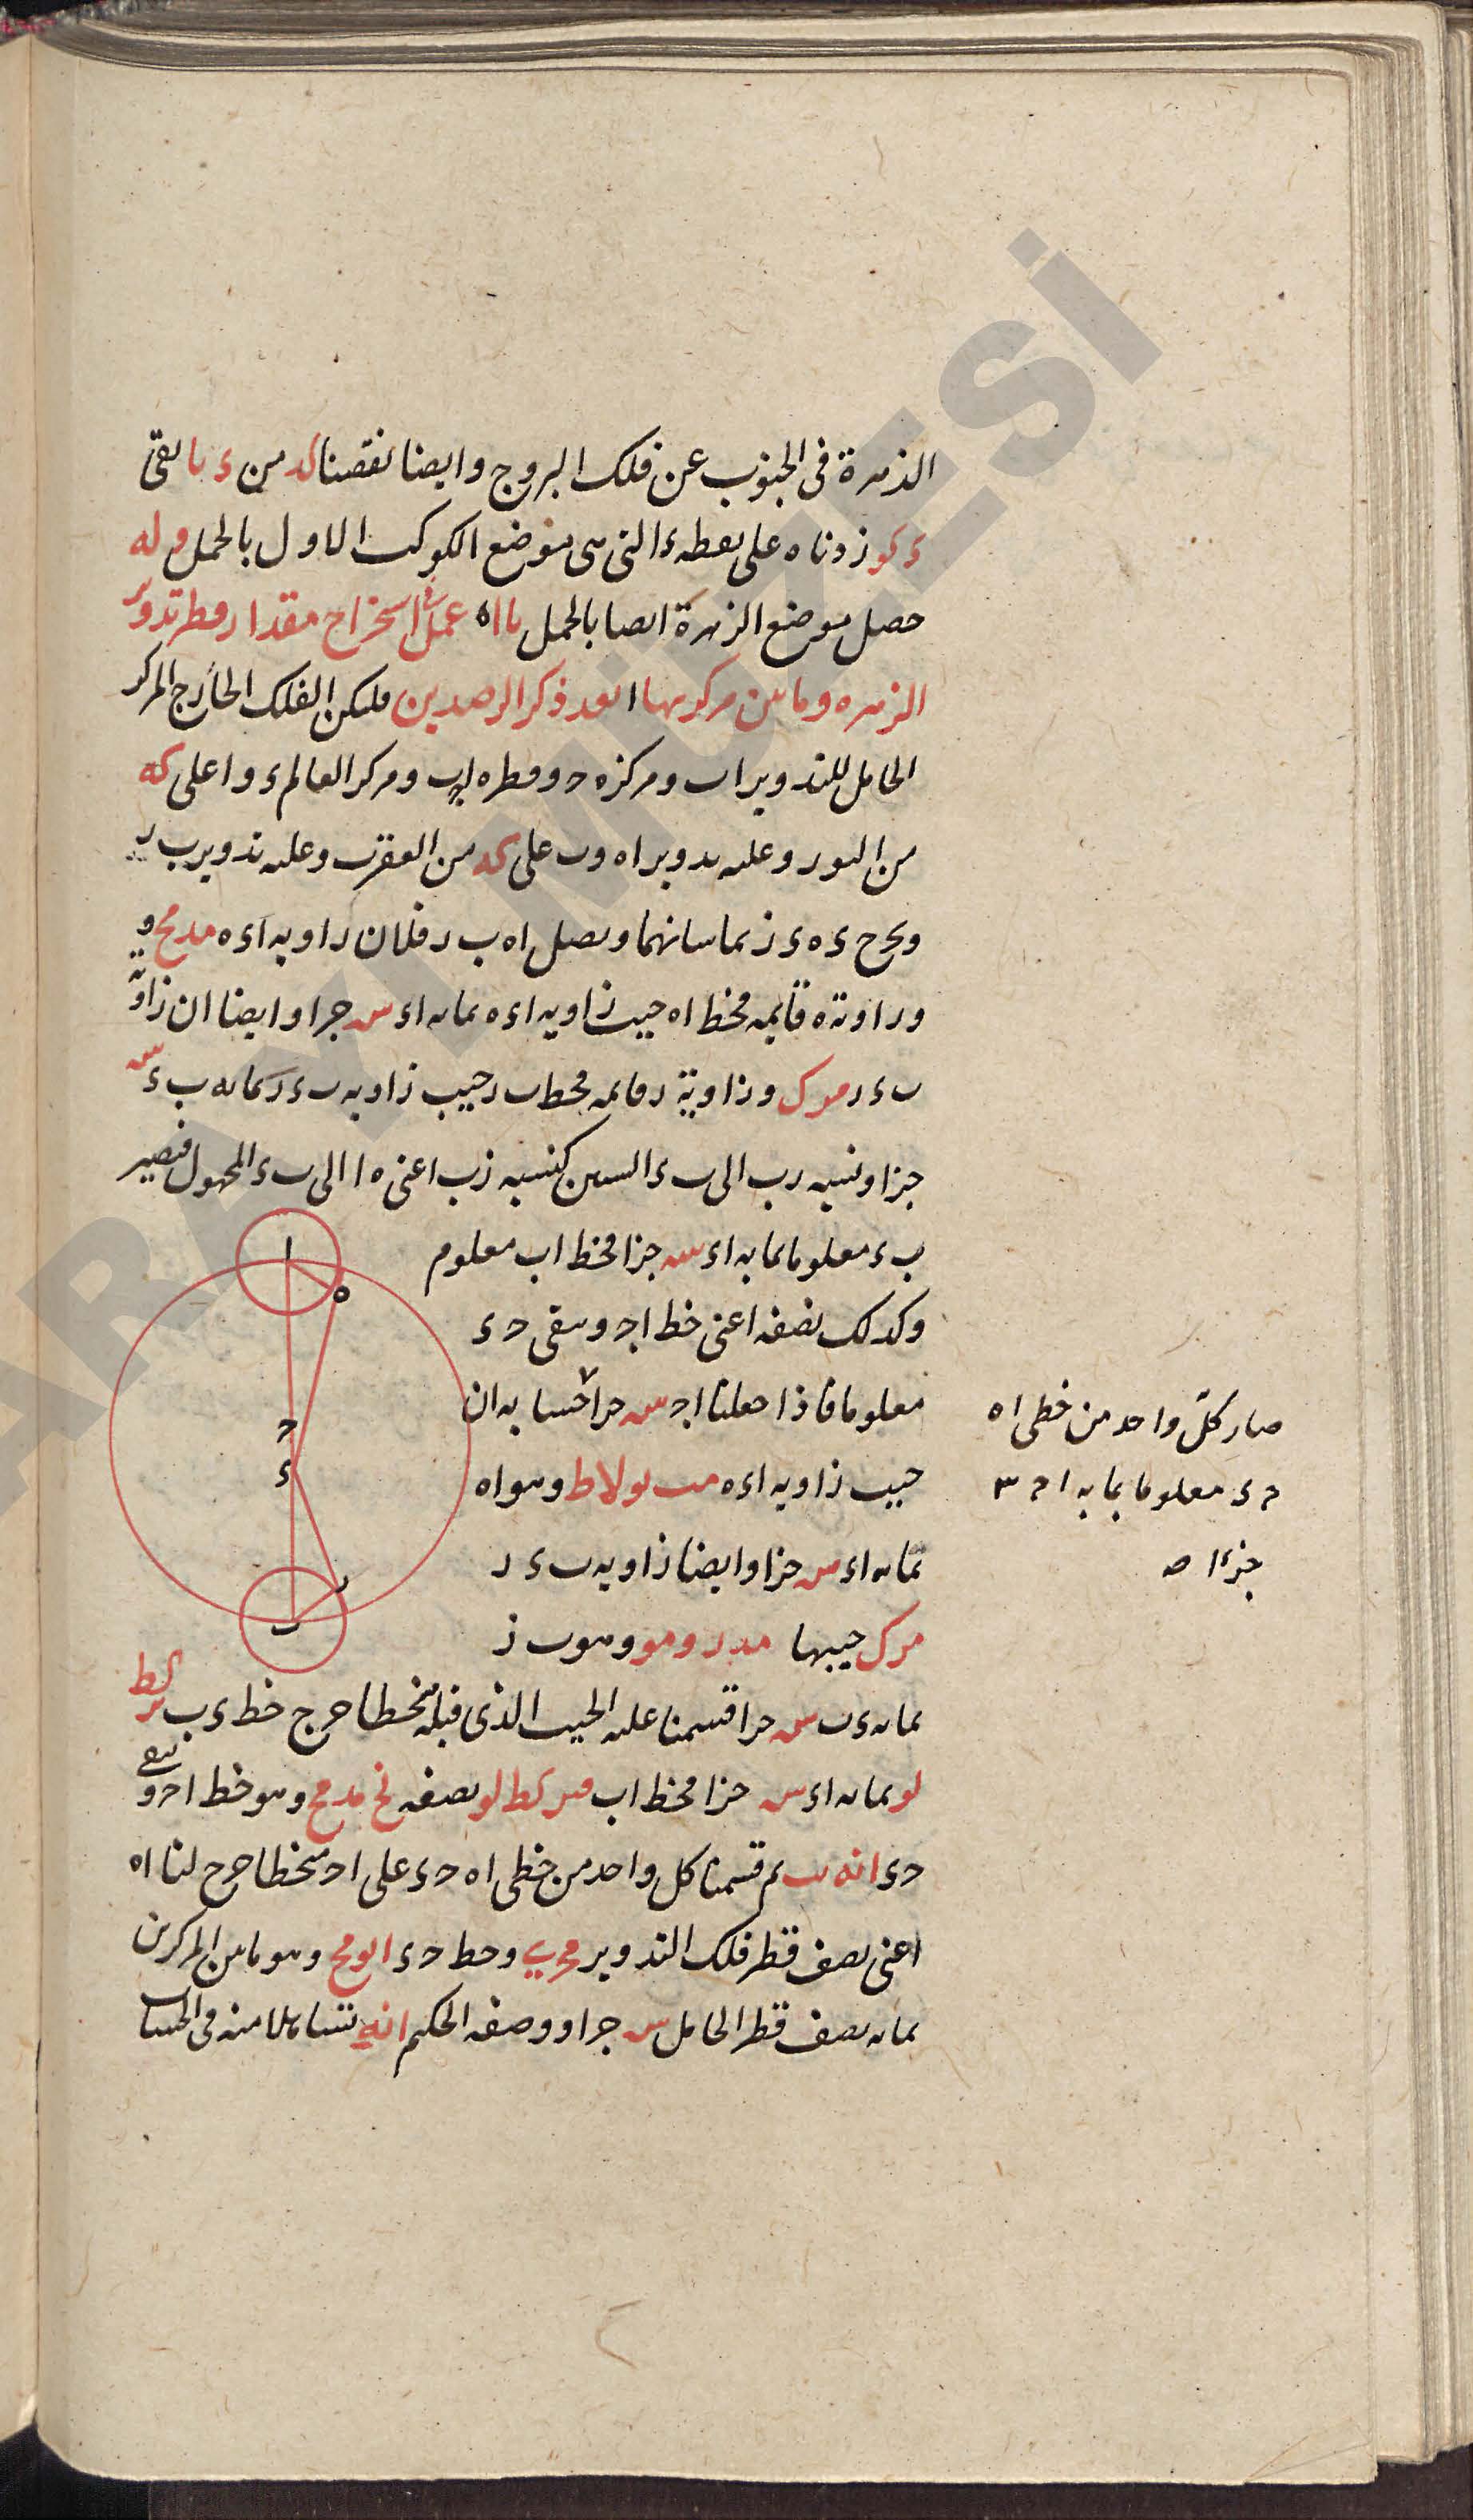 الزهرة فى الجنوب عن فلك البروج وايضا نقصنا لد من ء نا بقى
ء كو زدناه على نقطة ء التى هى موضع الكوكب الاول بالحمل و له
حصل موضع الزهرة ايضا بالحمل يا اه عمل فى استخراج مقدار قطر تدوير
الزهره وما بين مركزيها بعد ذكر الرصدين فليكن الفلك الخارج المركز
الحامل للتدوير اب ومركزه ح وقطره اب ومركز العالم ء و ا على كه
من الثور وعليه تدوير اه وب على كه من العقرب وعليه تدوير ب ر
ويخرج ء ه ء ز يماسانهما ويصل اه ب ر فلان زاوية ا ء ه مد مح
وزاوية ه قايمه فخط اه جيب زاويه ا ء ه بمابه اء س جزا وايضا ان زاوية
ب ء ر مو ك وزاوية ر قايمه فخط ب ر جيب زاويه ب ء ر بمابه ب ء س
جزا ونسبه ر ب الى ب ء الستين كنسبه زب اعنى ه ا الى ب ء المجهول فيصير
ب ء معلوما بمابه اء س جزا فخط اب معلوم
وكذلك نصفه اعنى خط اح ويبقى ح ء
معلوما فاذا جعلنا اح س جزا حسابه ان
جيب زاويه ا ء ه مب يو لا ط وهو اه
بمابه اء س جزا وايضا زاويه ب ء ر
مو ك جيبها مد ر و مو وهو ب ز
بمابه ء ب س جزا قسمنا عليه الجيب الذى قبله منحطا خرج خط ء ب كط
لو بمابه اء س جزا فخط اب كط لو نصفه نح مد مح وهو خط اح ويبقى
ح ء ا نه ب ثم قسمنا كل واحد من خطى اه ح ء على اح منحطا خرج لنا اه
اعنى نصف قطر فلك التدوير مح ى وخط ح ء ا يو مح وهو ما بين المركزين
بمابه نصف قطر الحامل س جزا ووصفه الحكيم ا نه تساهلا منه فى الحساب
صار كل واحد من خطى اه
ح ء معلوما بمابه اح س
جزءا صح
ا
ه
ح
ء
ر
ب